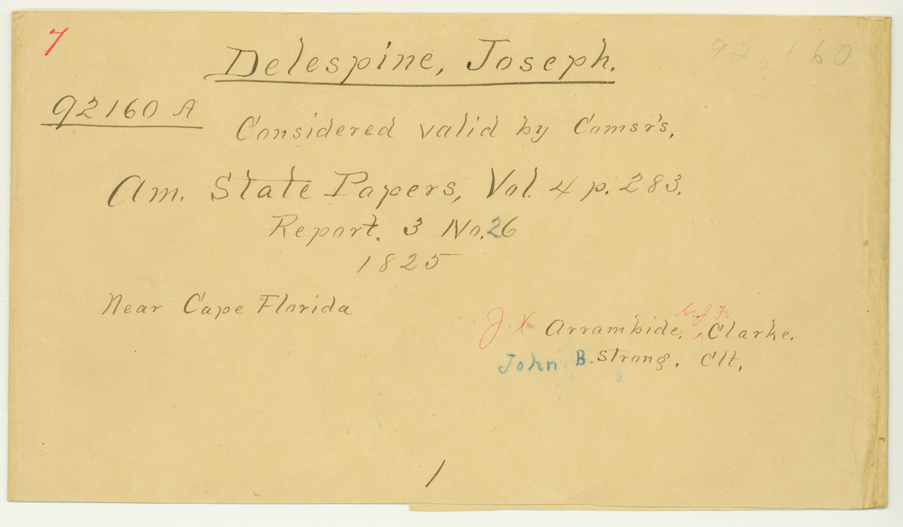 7
92160
Delespine, Joseph.
92160 A
Considered valid by Comsr's.
Am. State Papers, Vol. 4 p. 283.
Report. 3 No. 26
1825
Near Cape Florida
J. X Arrambide. G. J. F. Clarke.
John B. Strong. Clt.
1